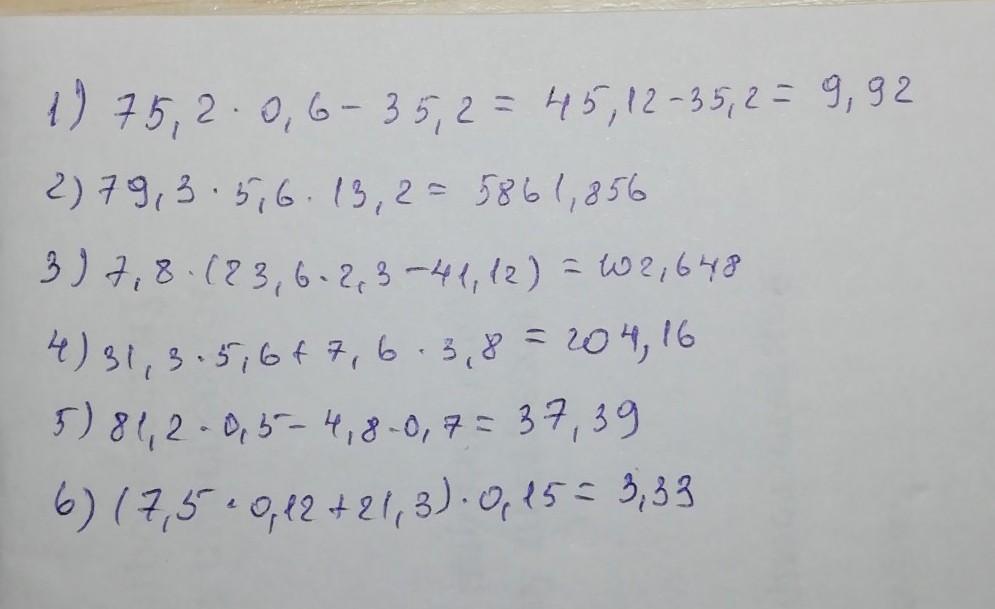 1) 75,2 · 0,6 - 35,2 = 45,12 - 35,2 = 9,92
2) 79,3 · 5,6 · 13,2 = 5861,856
3) 7,8 · (23,6 · 2,3 - 41,12) = 102,648
4) 31,3 · 5,6 + 7,6 · 3,8 = 204,16
5) 81,2 · 0,5 - 4,8 · 0,7 = 37,39
6) (7,5 · 0,12 + 21,3) · 0,15 = 3,33